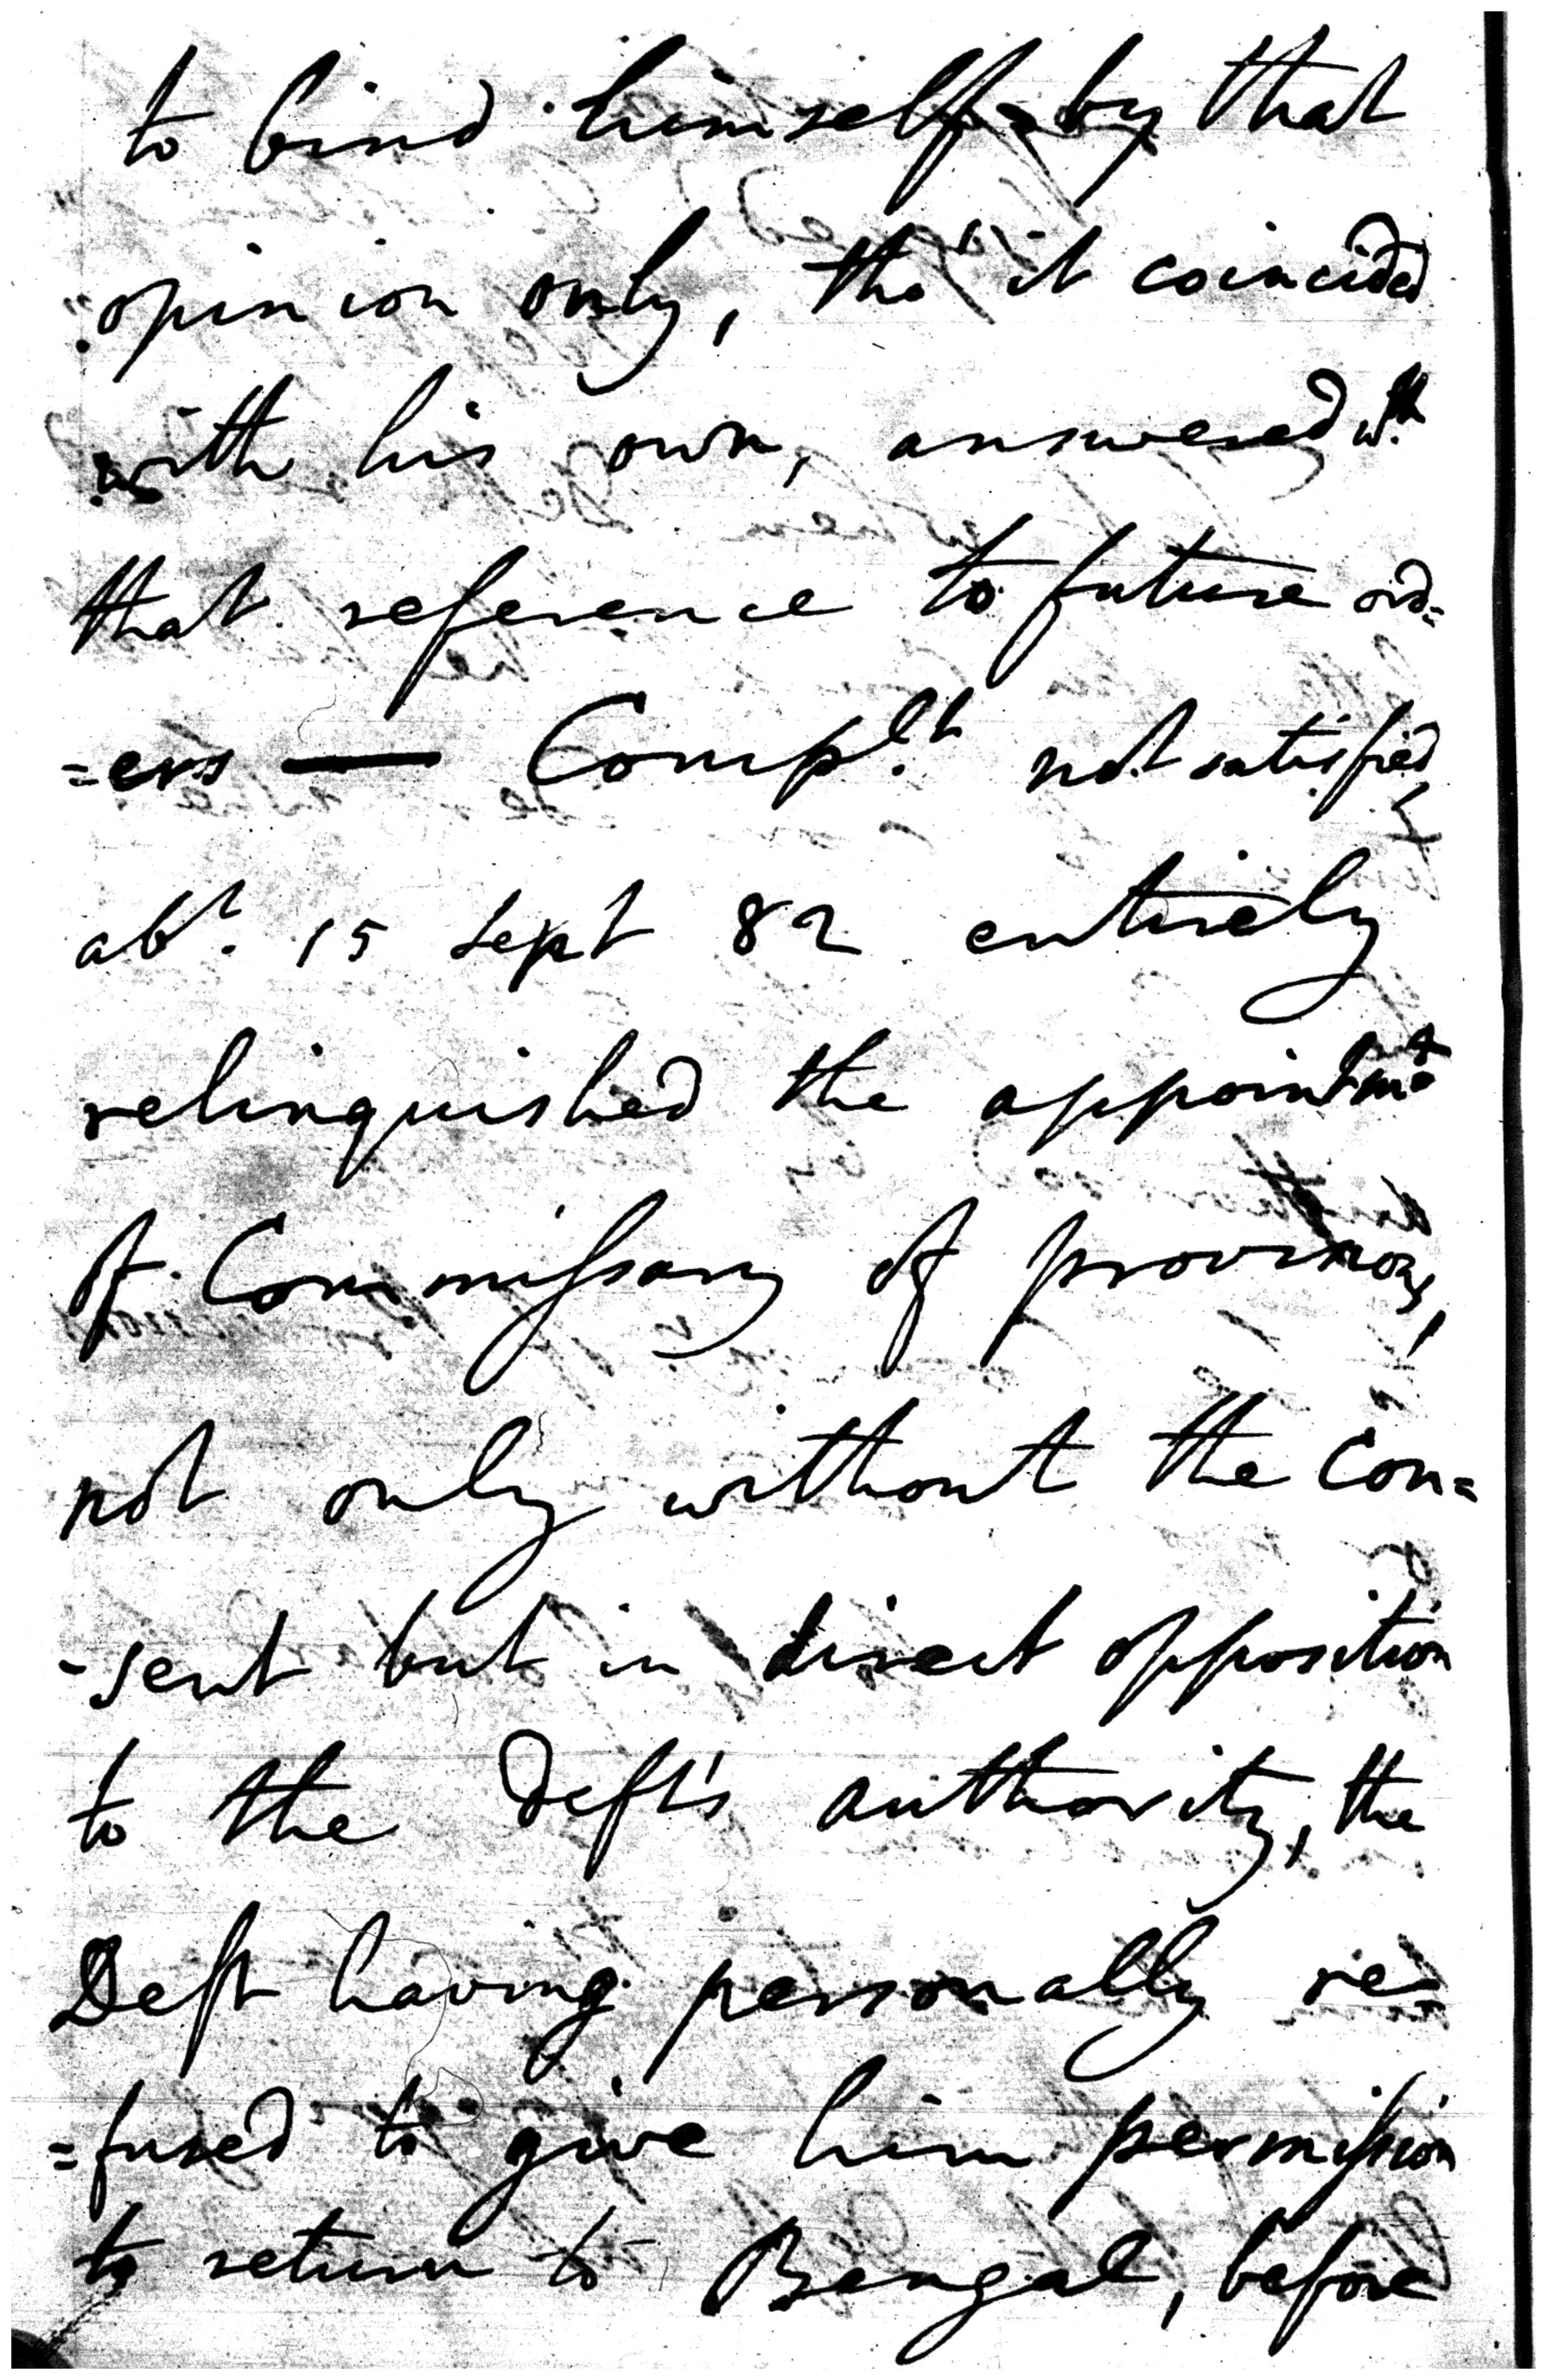 to bind himself by that
opinion only, tho' it coincided
with his own, answered wth
that reference to future ord=
=ers — Complt. not satisfied,
abt. 15 Sept 82 entirely
relinquished the appointmt
of Commiſsary of provisions,
not only without the Con=
-sent but in direct opposition
to the Deft's authority, the
Deft having personally re=
=fused to give him permiſsion
to return to Bengal, before